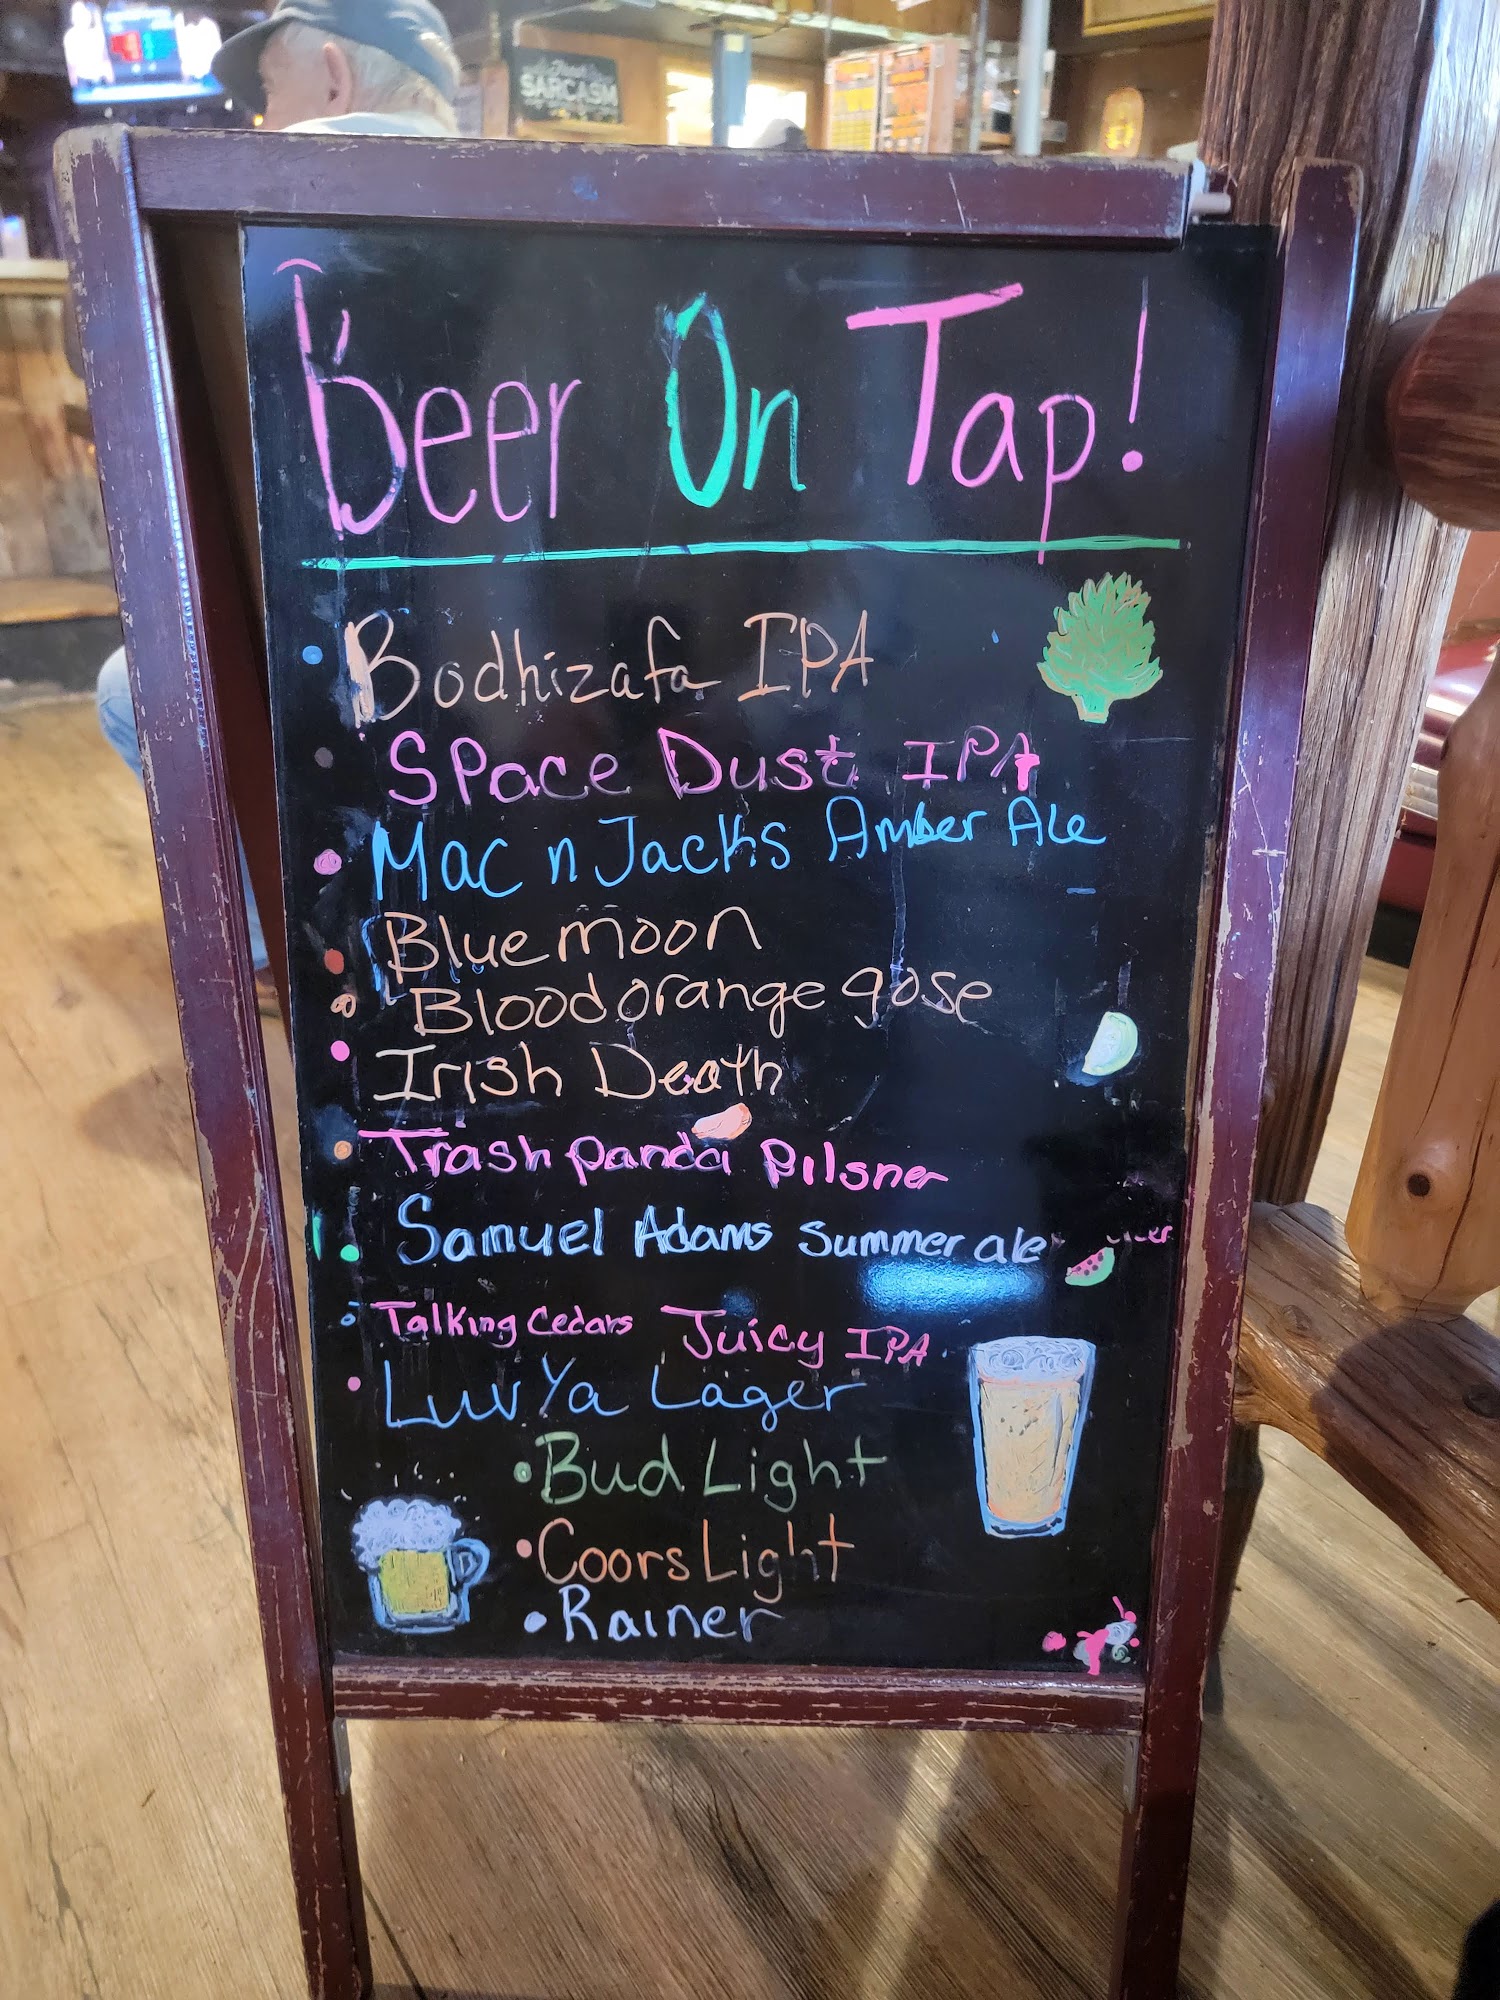 SARCASM
Beer On Tap!
Bodhizafa IPA
Space Dust IPA
Mac n Jacks Amber Ale
Blue moon
Blood orange gose
Irish Death
Trash panda Pilsner
Samuel Adams summer ale
Talking Cedars Juicy IPA
Luv Ya Lager
Bud Light
Coors Light
Rainer